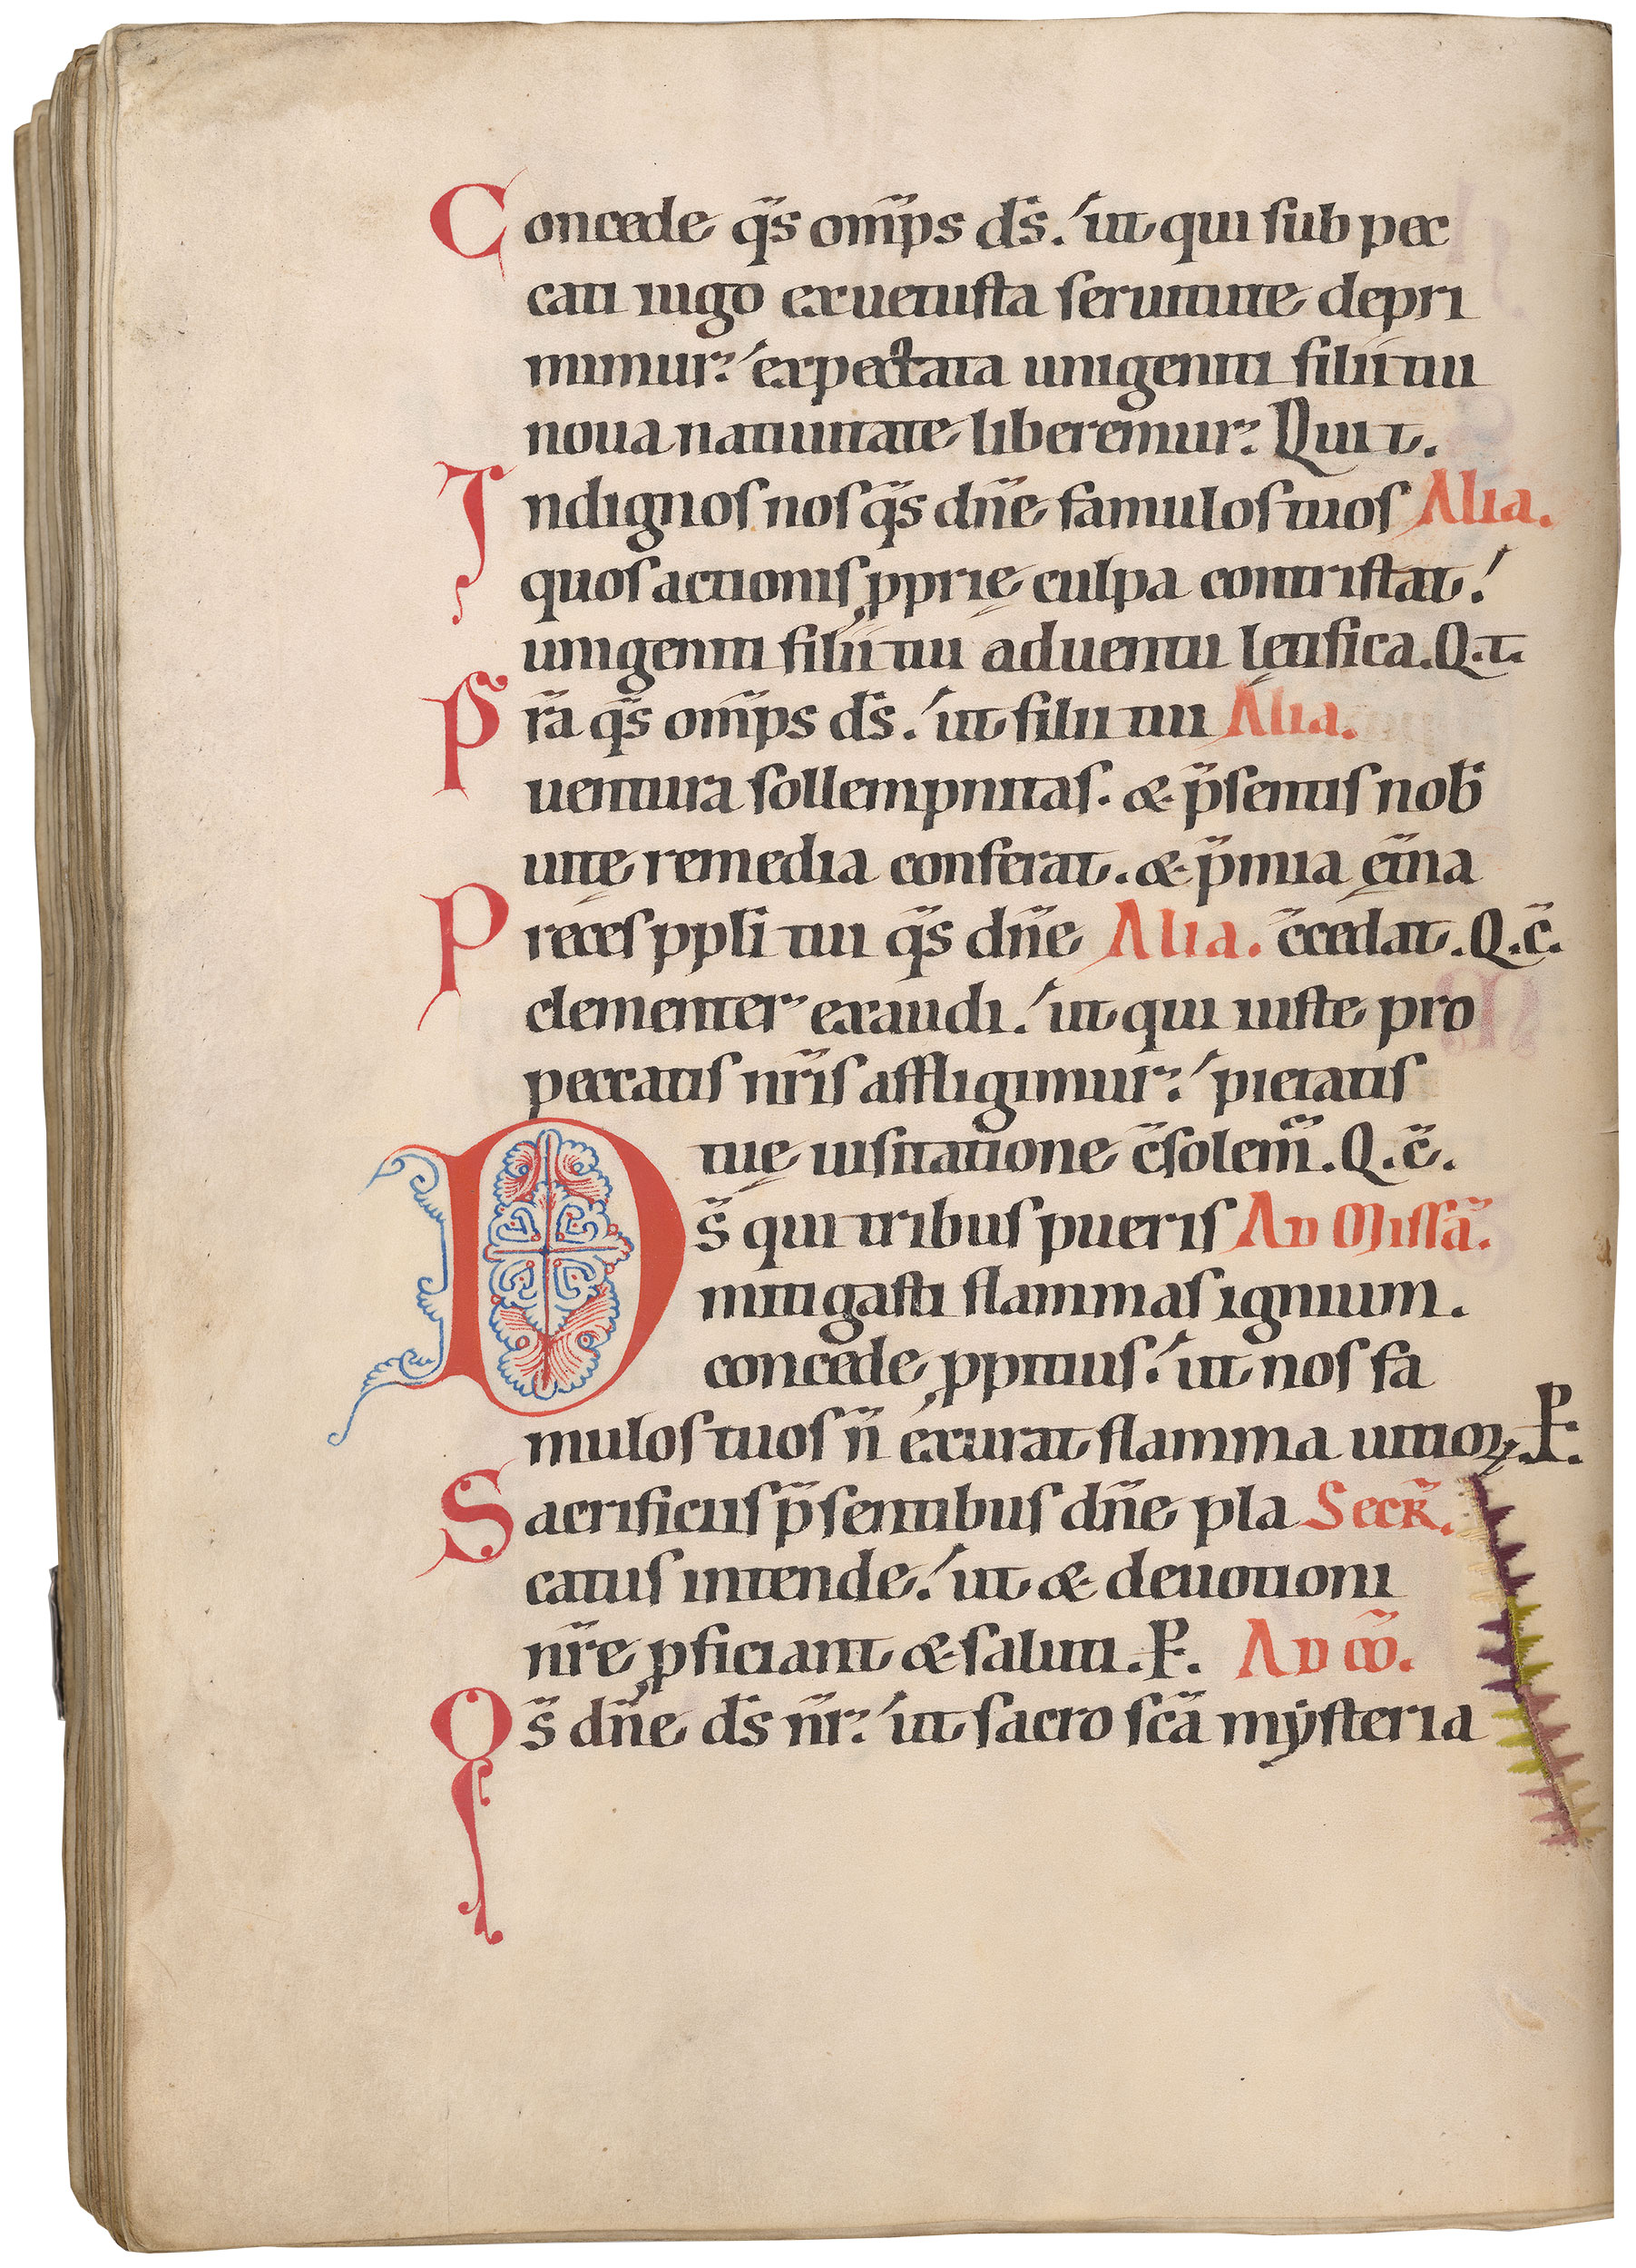 Concede q̄s om̄ps d̄s. ut qui sub pec
cati iugo exuetusta seruitute depri
mimur. expectata unigeniti filii tui
noua natiuitate liberemur. Qui t.
Indignos nos q̄s dn̄e famulos tuos Alia.
quos actionis ꝓprię culpa contristat.
unigeniti filii tui aduentu lętifica. Q.t.
Pr̄a q̄s om̄ps d̄s. ut filii tui Alia.
uentura sollempnitas. & p̄sentis nob̄
uitę remedia conferat. & p̄mia ęt̄na
Preces ppl̄i tui q̄s dn̄e Alia. c̄cedat. Q.c̄.
clementer exaudi. ut qui iuste pro
peccatis nr̄is affligimur. pietatis
tuę uisitatione c̄solem̄. Q.c̄.
Ds̄ qui tribus pueris Ad Missā.
mitigasti flammas ignium.
concede ꝓpitius. ut nos fa
mulos tuos n̄ exurat flamma uitioꝝ. P.
Sacrificiis p̄sentibus dn̄e pla Secr̄.
catus intende. ut & deuotioni
nr̄e ꝓficiant & saluti. P. Ad co̅.
Qs̄ dn̄e d̄s nr̄. ut sacro sc̄a mẏsteria